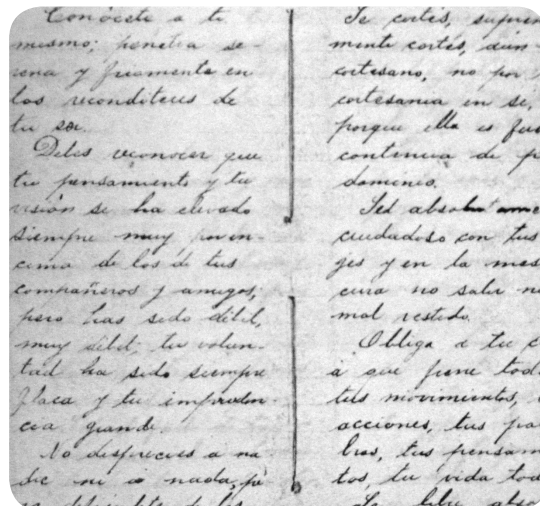 Conócete a ti
mismo; penetra se-
rena y friamente en
las reconditeces de
tu ser.
Debes reconocer que
tu pensamiento y tu
visión se ha elevado
siempre muy por en-
cima de los de tus
compañeros y amigos;
pero has sido débil,
muy débil; tu volun-
tad ha sido siempre
flaca y tu impruden-
cia grande.
No desprecies a na-
die ni a nada, pa
Se cortés, suprem
mente cortés, aún
cortesano, no por
cortesania en sí,
porque ella es fue
continencia de p
dominio.
Sed absolutame
cuidadoso con tus
ges y en la mas
cura no salir n
mal vestido.
Obliga a tu c
a que frene tod
tus movimientos,
acciones, tus pa
bras, tus pensam
tos, tu vida tod